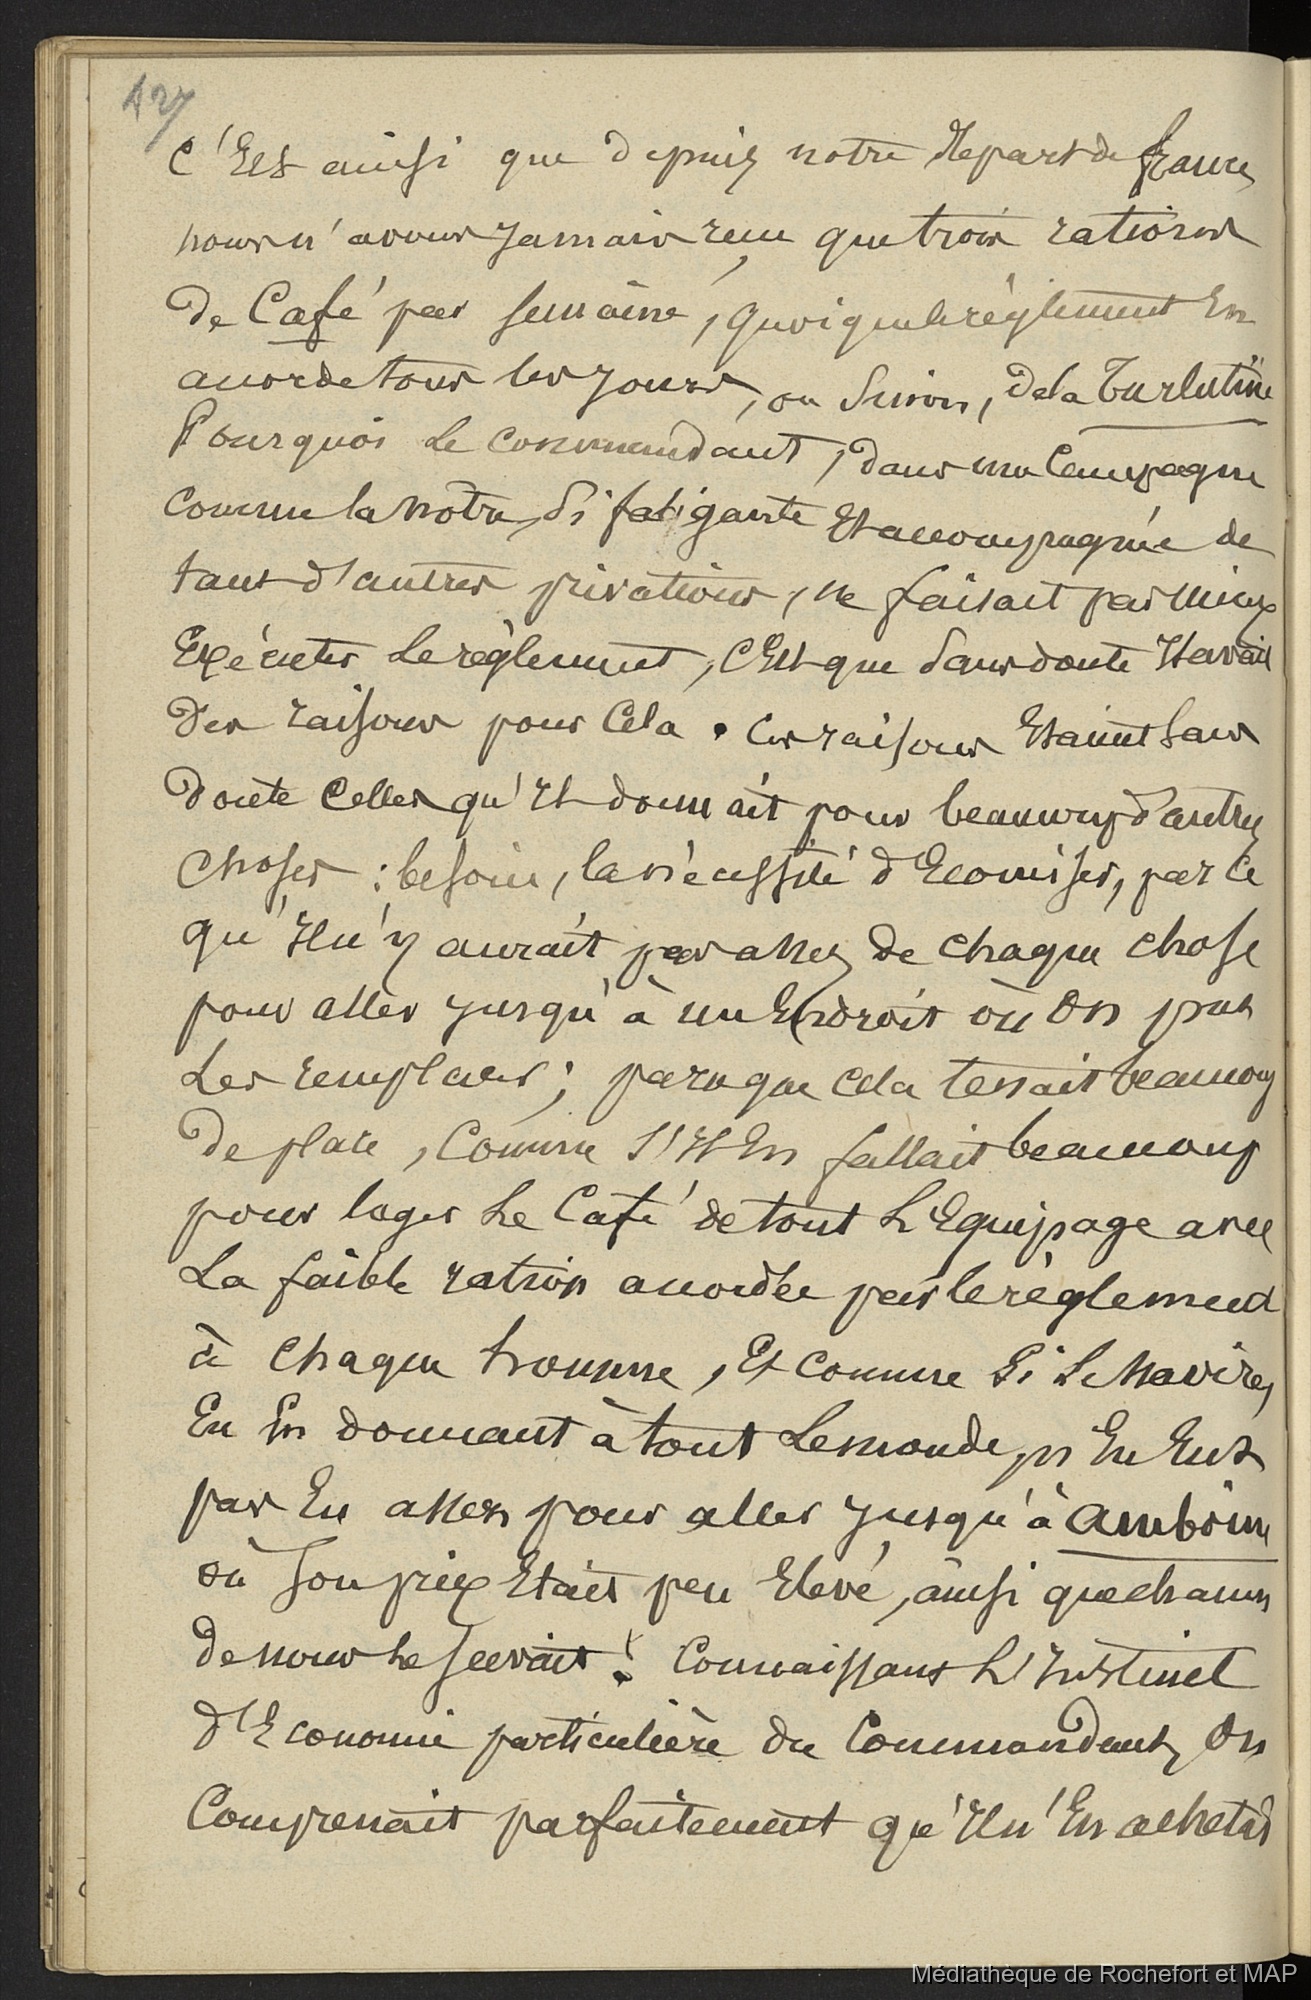 127
C'Est ainsi que depuis notre départ de france,
nous n'avons jamais reçu que trois rations
De Café par semaine, quoique le règlement En
accorde tous les jours, ou sinon, de la Turlutine
Pourquoi Le commandant, dans une Campagne
Comme la notre, si fatigante Et accompagnée de
tant d'autres privations, ne faisait pas mieux
Exécuter Le règlement, C'Est que sans doute Il avait
Des raisons pour Cela. Ces raisons Etaient sans
Doute Celles qu'Il donnait pour beaucoup d'autres
Choses : besoin, la nécessité d'Economiser, par Ce
qu'Il n'y aurait pas assez de chaque chose
pour aller jusqu'à un Endroit où On put
Les remplacer ; parce que cela tenait beaucoup
De place, Comme S'Il En fallait beaucoup
pour loger Le Café de tout L'Equipage avec
La faible ration accordée par le règlement
à Chaque homme, Et Comme Si Le Navire,
En En donnant à tout Le monde, n'En Eut
pas Eu assez pour aller jusqu'à Amboine
où Son prix Etait peu Elevé, ainsi que chacun
De nous Le Savait ! Connaissant L'Instinct
d'Economie particulière du Commandant, On
Comprenait parfaitement qu'Il n'En achetât
Médiathèque de Rochefort et MAP